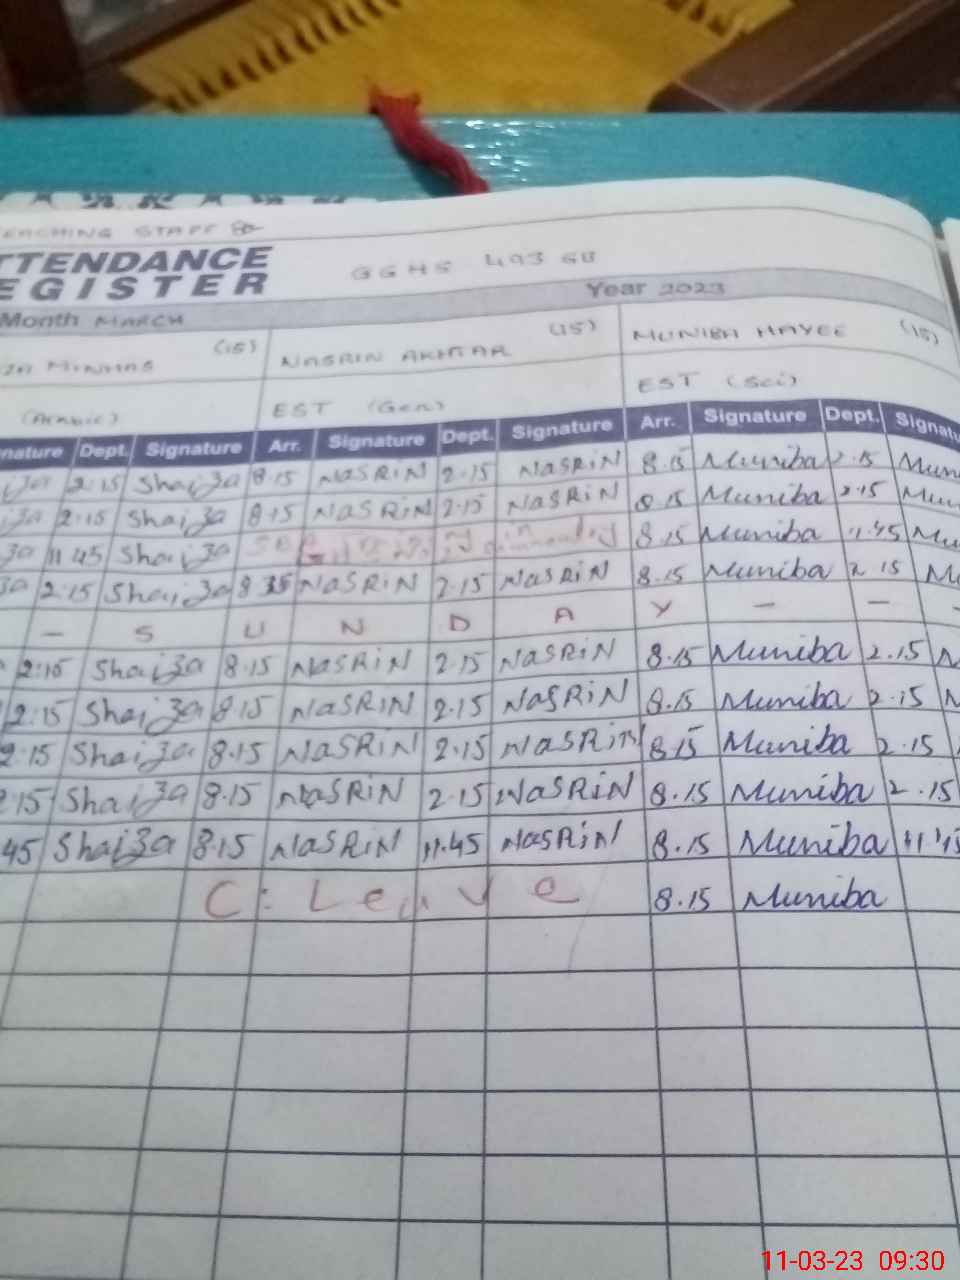 EACHING STAFF
TTENDANCE GGHS 493 GB
EGISTER
Month MARCH Year 2023
MINHAS (15) NASRIN AKHTAR (15) MUNIBA HAYEE (15)
(Arabic) EST (Gen) EST (Sci)
nature Dept. Signature Arr. Signature Dept. Signature Arr. Signature Dept. Signatu
2:15 Shaiza 8.15 NASRIN 2.15 NASRIN 8.15 Muniba 2.15 Mun
2:15 Shaiza 8.15 NASRIN 2.15 NASRIN 8.15 Muniba 2.15 Mu
11.45 Shaiza 8.15 Muniba 11.45 Mu
2:15 Shaiza 8 35 NASRIN 2.15 NASRIN 8.15 Muniba 2.15 M
– S U N D A Y – – –
2:15 Shaiza 8.15 NASRIN 2.15 NASRIN 8.15 Muniba 2.15 M
2:15 Shaiza 8.15 NASRIN 2.15 NASRIN 8.15 Muniba 2.15 M
2:15 Shaiza 8.15 NASRIN 2.15 NASRIN 8.15 Muniba 2.15
2:15 Shaiza 8.15 NASRIN 2.15 NASRIN 8.15 Muniba 2.15
45 Shaiza 8.15 NASRIN 11.45 NASRIN 8.15 Muniba 11.45
C: Leave 8.15 Muniba
11-03-23 09:30